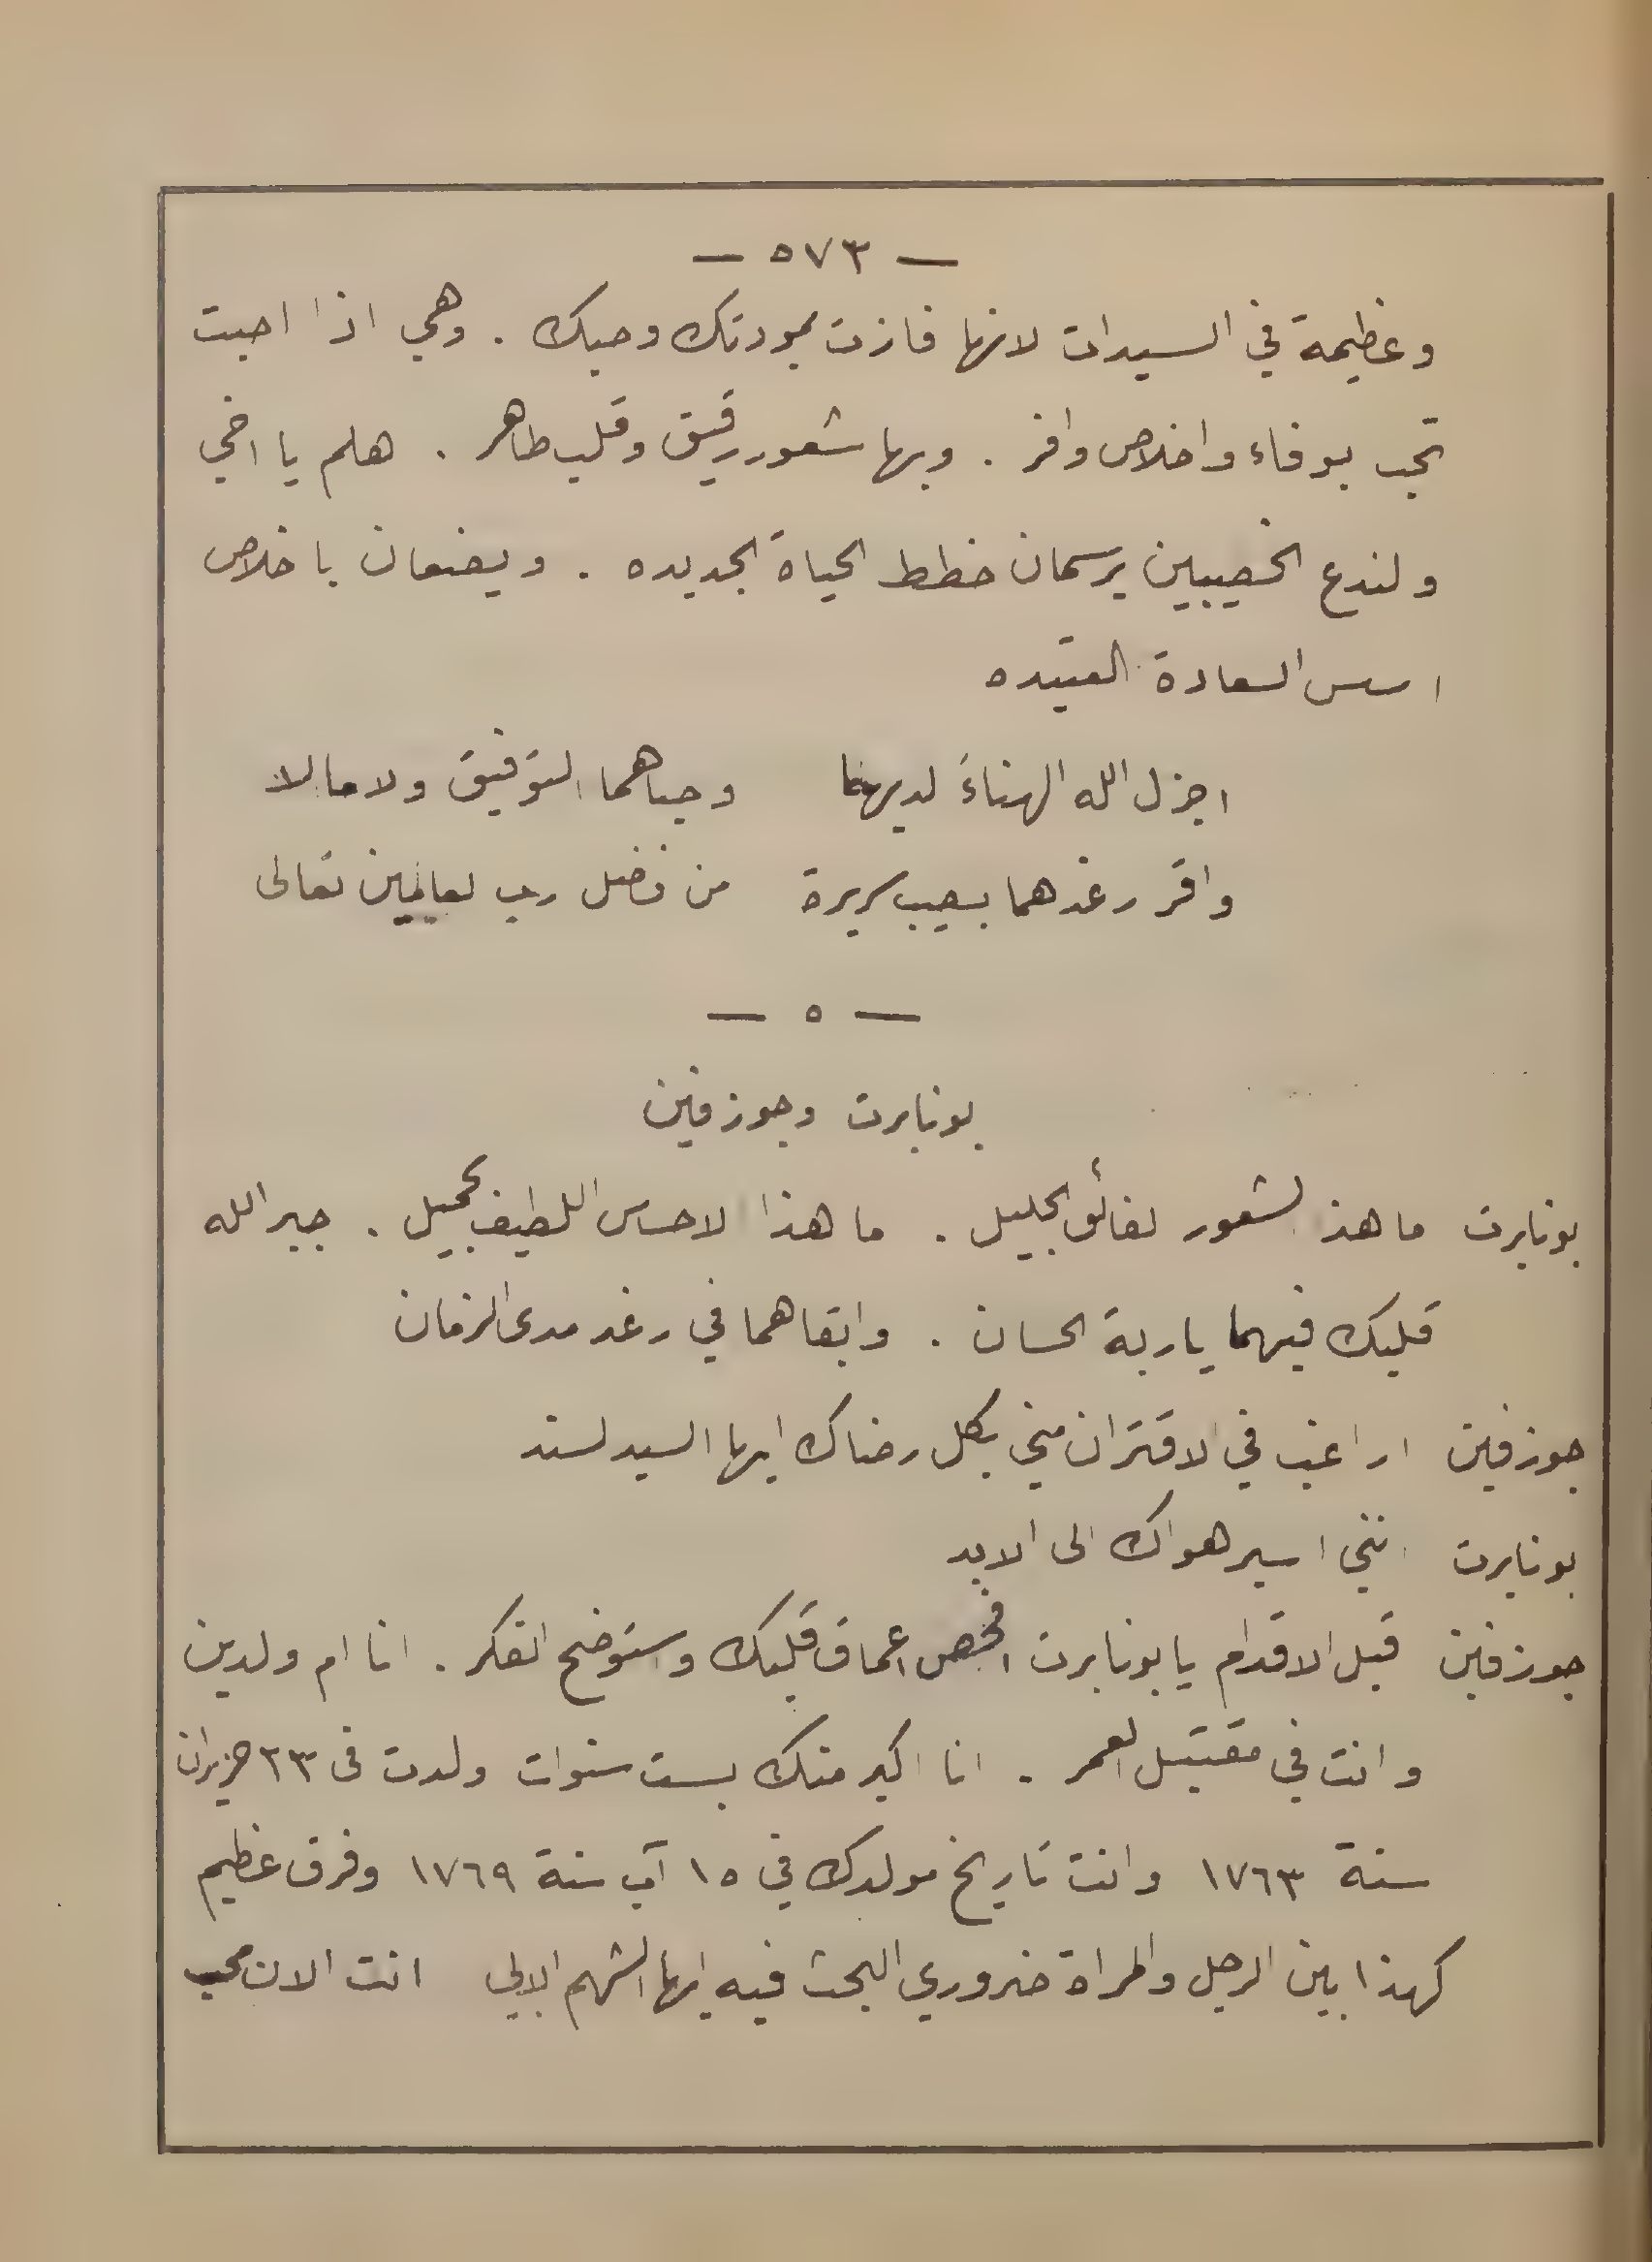 — ٥٧٣ —
وعظيمة في السيدات لانها فازت بمودتك وحبك . وهي اذا احبت
تحب بوفاء واخلاص وافر . وبها شعور رقيق وقلب طاهر . هلم يا اخي
ولندع الخصيبين يرسمان خطط الحياة الجديده . ويضعان باخلاص
اسس السعادة العتيده
اجزل الله الهناءَ لديهما وحباهما التوفيق والامالا
واقر رغدهما بصيب سريرة من فضل رب العالمين تعالى
— ٥ —
بونابرت وجوزفين
بونابرت ما هذا الشعور الفائق الجليل . ما هذا الاحساس اللطيف الجميل . جبر الله
قلبك فيهما يا ربة الحسان . وابقاهما في رغد مدى الزمان
جوزفين اراغب في الاقتران مني بكل رضاك ايها السيد السند
بونابرت انني اسير هواك الى الابد
جوزفين قبل الاقدام يا بونابرت افحص اعماق قلبك واستوضح الفكر . انا ام ولدين
وانت في مقتبل العمر . انا اكبر منك بست سنوات ولدت في ٢٣ حزيران
سنة ١٧٦٣ وانت تاريخ مولدك في ١٥ آب سنة ١٧٦٩ وفرق عظيم
كهذا بين الرجل والمراة ضروري البحث فيه ايها الشهم الابي انت الان محب